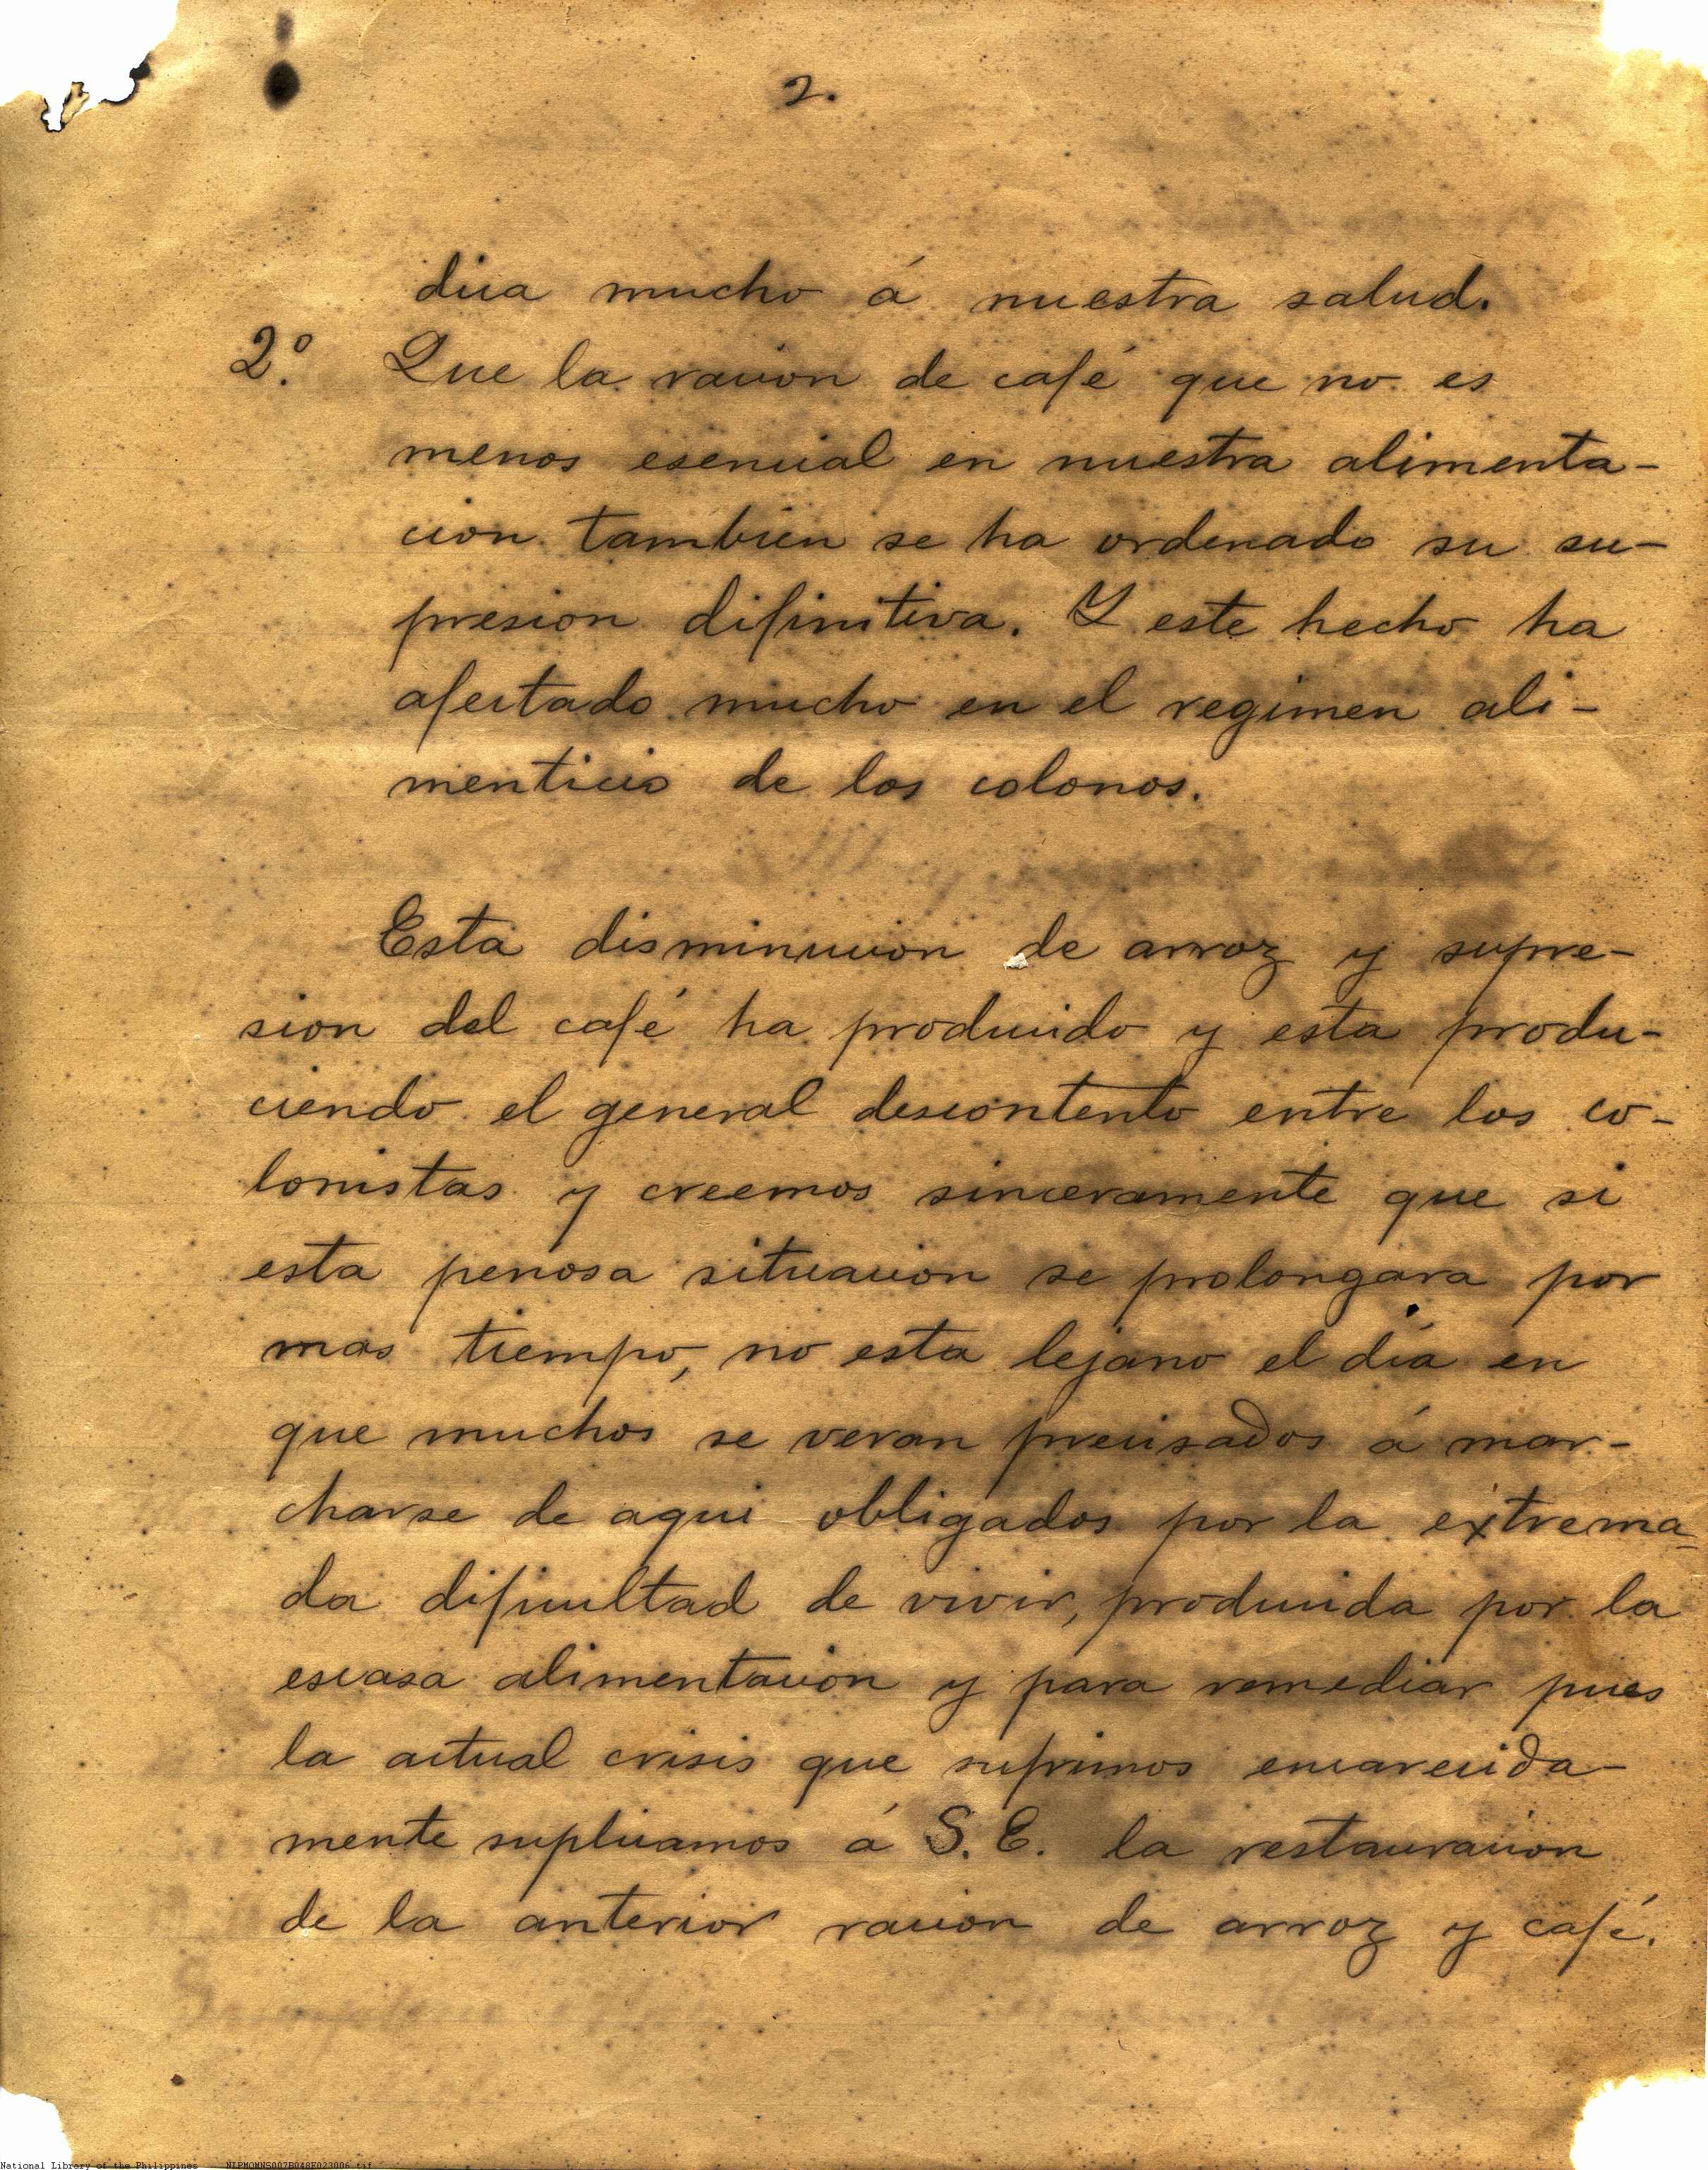 2.
dica mucho á nuestra salud.
2º. Que la racion de café que no es
menos esencial en nuestra alimenta-
cion tambien se ha ordenado su su-
presion difinitiva. Y este hecho ha
afectado mucho en el regimen ali-
menticio de los colonos.
Esta disminucion de arroz y supre-
sion del café ha producido y esta produ-
ciendo el general descontento entre los co-
lonistas y creemos sinceramente que si
esta penosa situacion se prolongara por
mas tiempo, no esta lejano el día en
que muchos se veran precisados á mar-
charse de aqui obligados por la extrema-
da dificultad de vivir, producida por la
escasa alimentacion y para remediar pues
la actual crisis que suprimos encarecida-
mente suplicamos á S. E. la restauracion
de la anterior racion de arroz y café.
National Library of the Philippines NLPMQMNS007B048F023006.tif